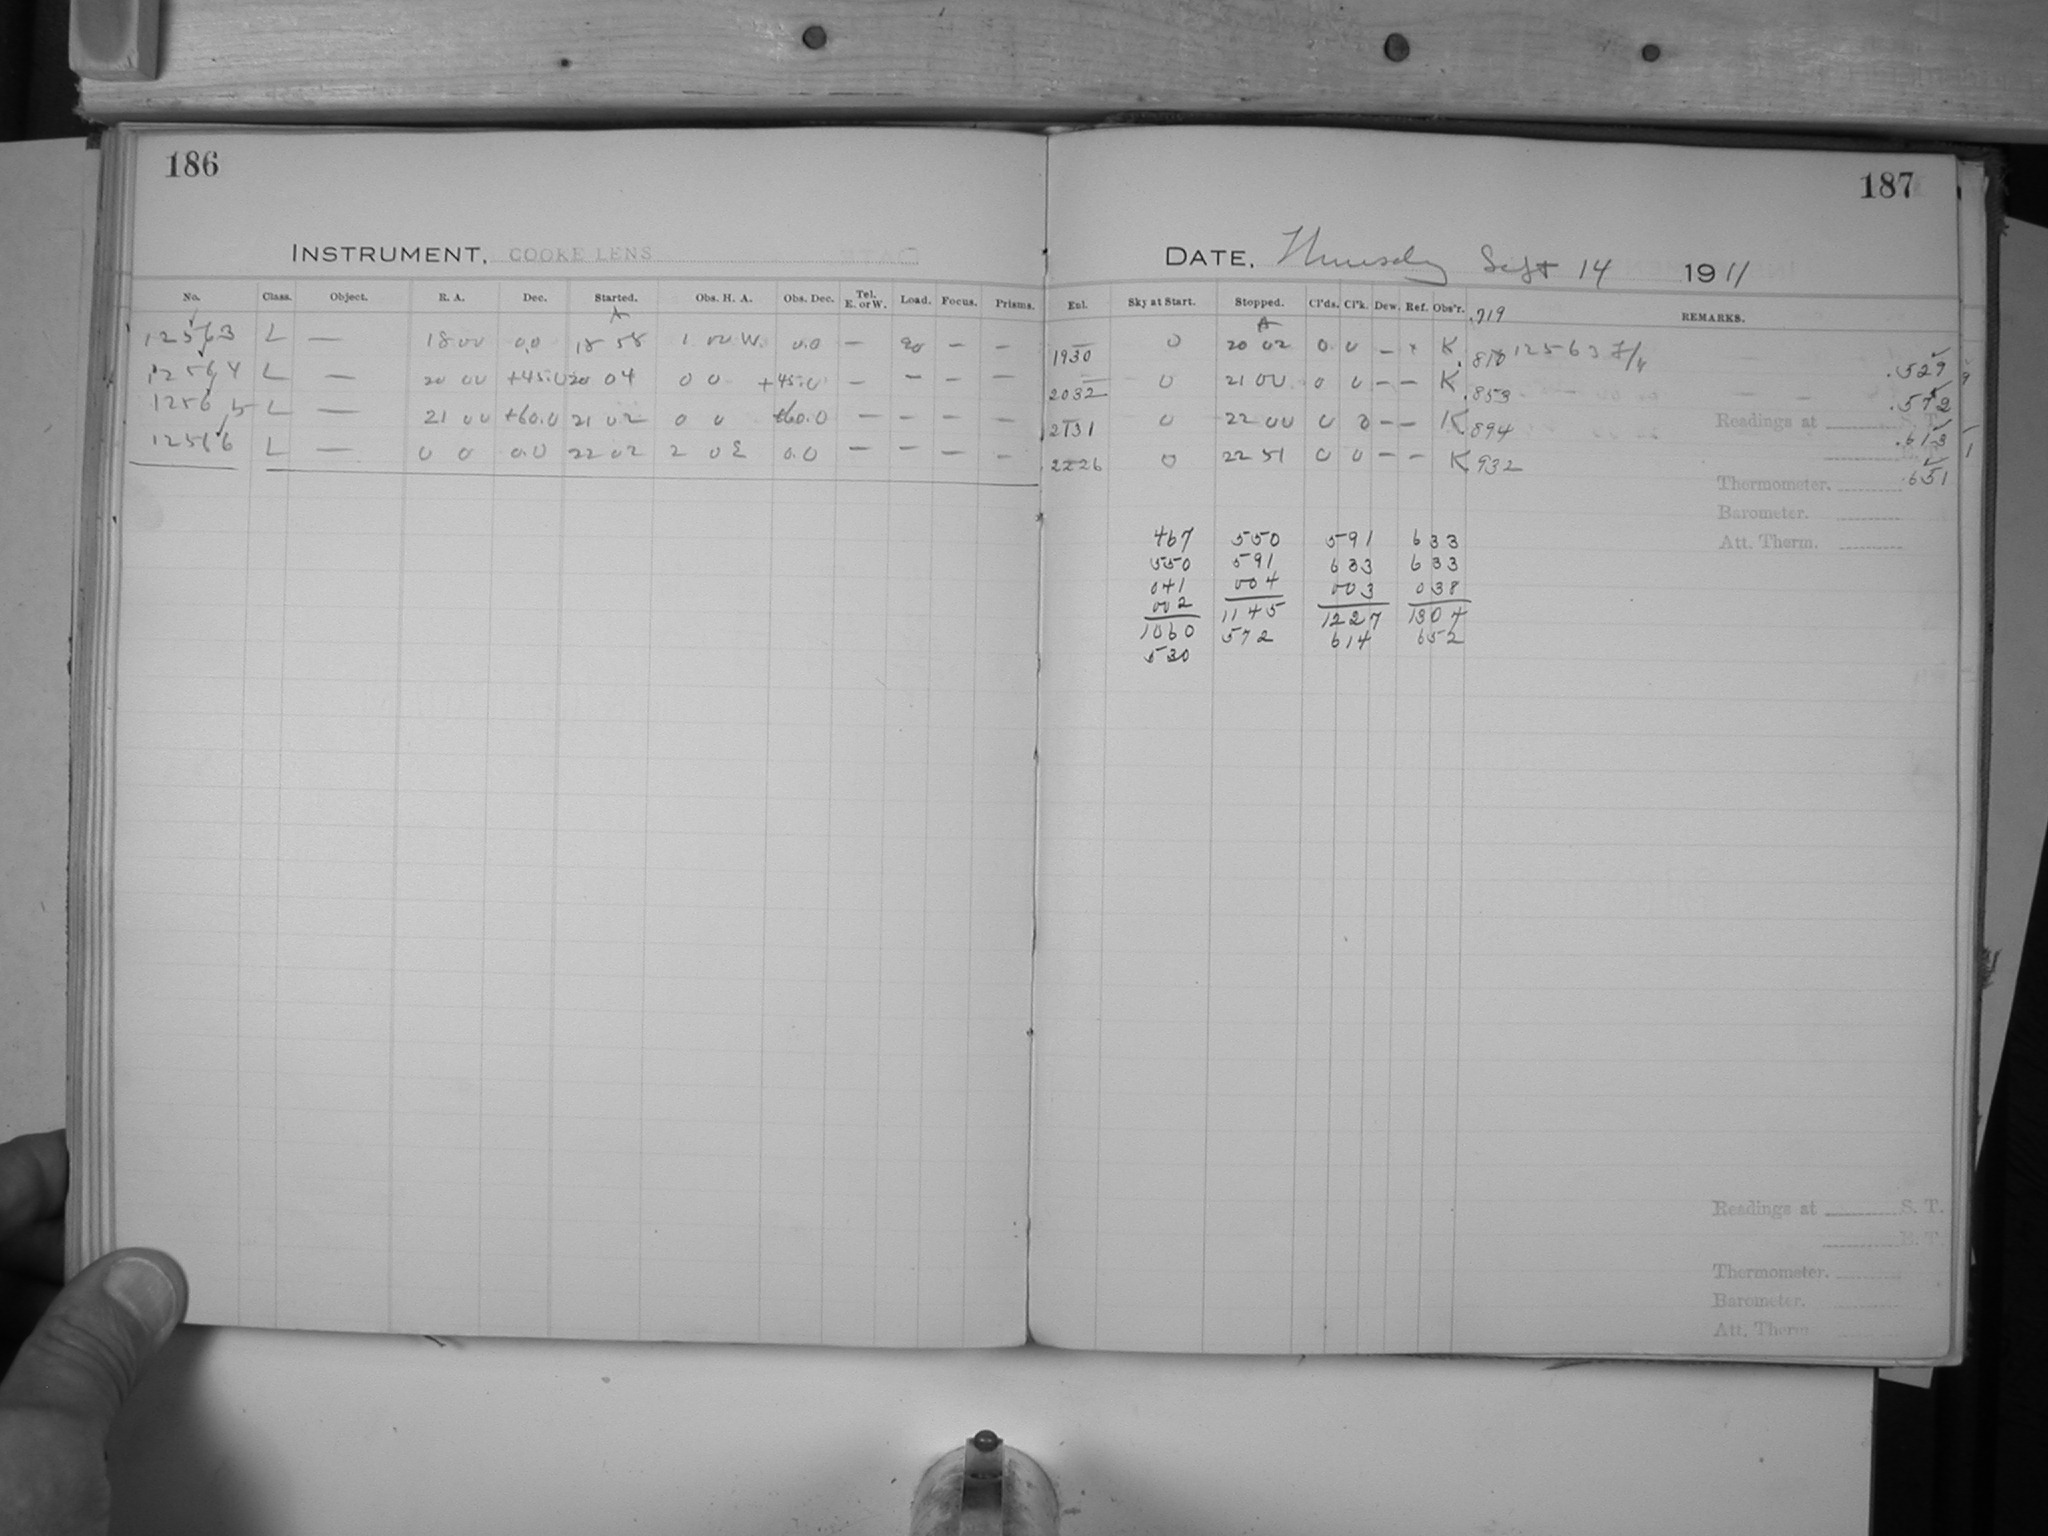 186
187
INSTRUMENT, COOKE LENS
DATE, Thursday Sept 14 1911
No. Class. Object. R. A. Dec. Started. Obs. H. A. Obs. Dec. Tel. E. or W. Load. Focus. Prisms. Enl. Sky at Start. Stopped. Cl'ds. Cl'k. Dew. Ref. Obs'r. .719 REMARKS.
A A
12563 L — 18 00 0.0 18 58 1 00 W. 0.0 — 20 — — 1930 0 20 02 0 0 — K .810 12563 F/4 .529
12564 L — 20 00 +45.0 20 04 0 0 +45.0 — — — — 2032 0 21 00 0 0 — — K .853 .572
12565 L — 21 00 +60.0 21 02 0 0 +60.0 — — — — 2131 0 22 00 0 0 — — K .894 .613
12566 L — 0 0 0.0 22 02 2 0 E 0.0 — — — — 2226 0 22 51 0 0 — — K .932 .651
Readings at S. T.
Thermometer.
Barometer.
Att. Therm.
467 550 591 633
550 591 633 633
041 004 003 038
002 1145 1227 1304
1060 572 614 652
530
Readings at S. T.
E. T.
Thermometer.
Barometer.
Att. Therm